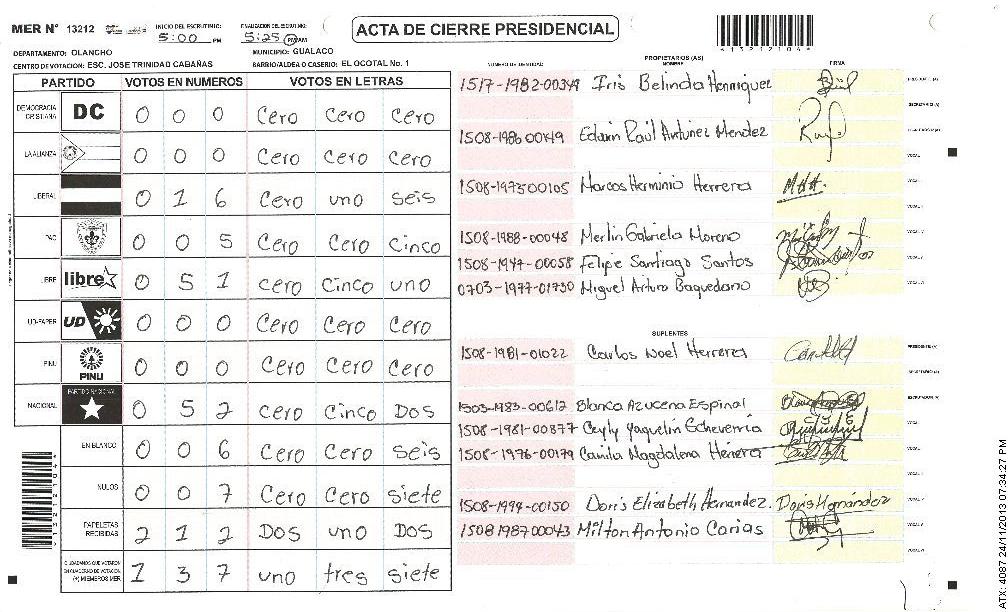 MER N° 13212 INICIO DEL ESCRUTINIO: 5:00 PM FINALIZACION DEL ESCRUTINIO: 5:25 PM/AM
ACTA DE CIERRE PRESIDENCIAL
DEPARTAMENTO: OLANCHO MUNICIPIO: GUALACO
CENTRO DE VOTACION: ESC. JOSE TRINIDAD CABAÑAS BARRIO/ALDEA O CASERIO: EL OCOTAL No. 1
PARTIDO VOTOS EN NUMEROS VOTOS EN LETRAS
DEMOCRACIA CRISTIANA DC 0 0 0 Cero Cero Cero
LA ALIANZA 0 0 0 Cero Cero Cero
LIBERAL 0 1 6 Cero uno seis
PAC 0 0 5 Cero Cero Cinco
LIBRE libre 0 5 1 cero Cinco uno
UD-FAPER UD 0 0 0 Cero Cero Cero
PINU PINU 0 0 0 Cero Cero Cero
NACIONAL PARTIDO NACIONAL 0 5 2 cero Cinco Dos
EN BLANCO 0 0 6 Cero Cero Seis
NULOS 0 0 7 Cero Cero siete
PAPELETAS RECIBIDAS 2 1 2 Dos uno Dos
CIUDADANOS QUE VOTARON EN CUADERNO DE VOTACION (+) MIEMBROS MER 1 3 7 uno tres siete
PROPIETARIOS (AS)
NUMERO DE IDENTIDAD NOMBRE FIRMA
1517-1982-00349 Iris Belinda Henriquez
1508-1986-00419 Edwin Raúl Antunez Mendez
1508-1975-00105 Marcos Herminio Herrera
1508-1988-00048 Merlin Gabriela Moreno
1508-1947-00058 Felipe Santiago Santos
0703-1977-01730 Miguel Arturo Baquedano
SUPLENTES
1508-1981-01022 Carlos Noel Herrera
1503-1983-00612 Blanca Azucena Espinal
1508-1981-00377 Ceyly Yaquelin Echeverria
1508-1976-00179 Camila Magdalena Herrera
1508-1994-00150 Doris Elizabeth Hernandez. Doris Hernández
1508 1987 00043 Milton Antonio Carias
ATX: 4087 24/11/2013 07:34:27 PM